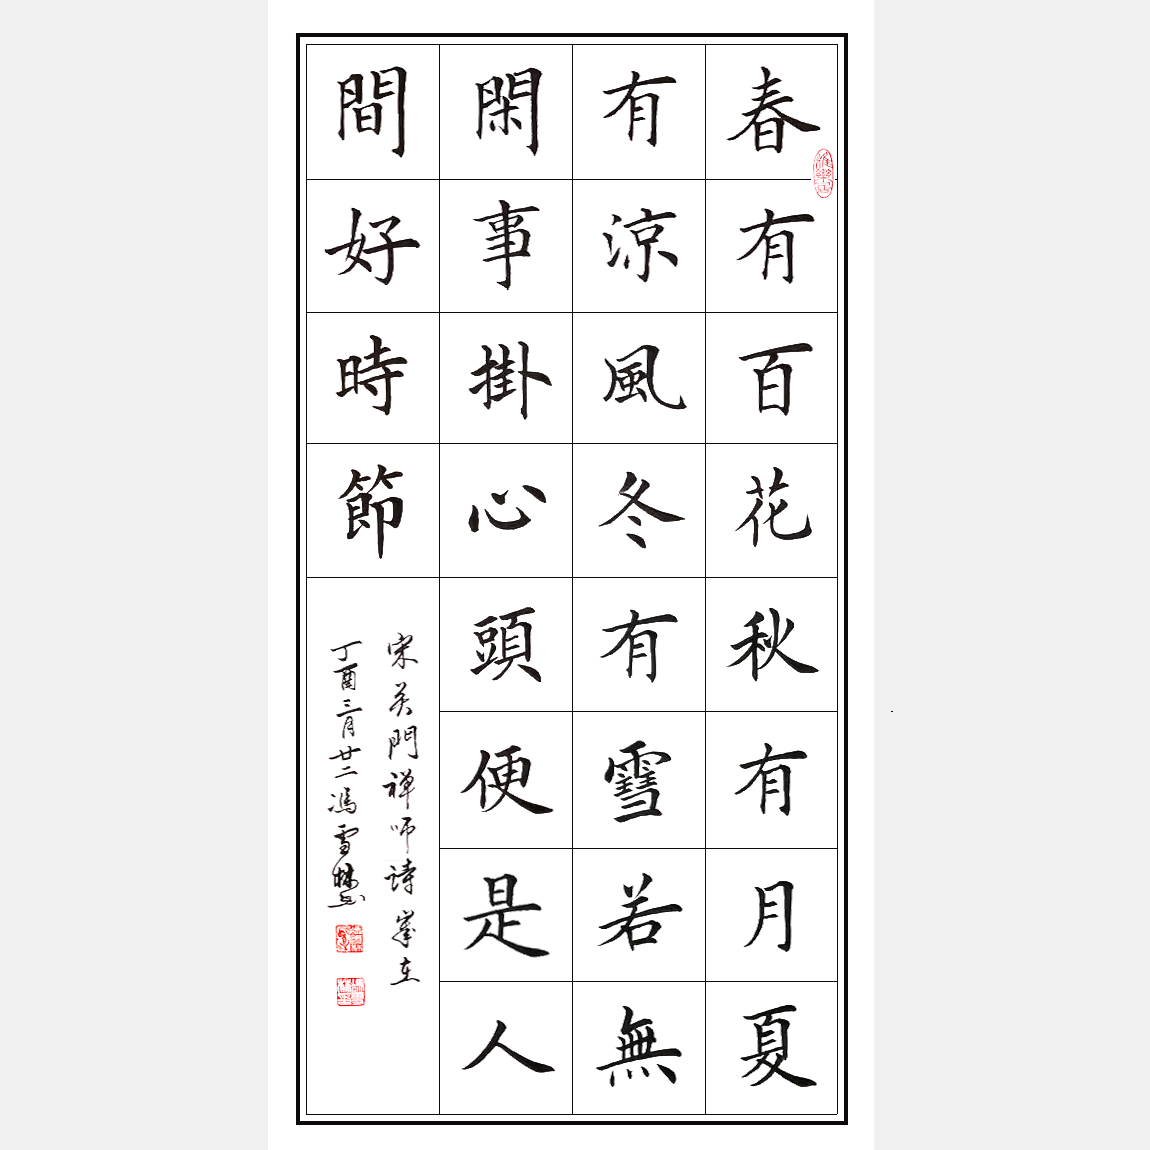 春有百花秋有月夏
有涼風冬有雪若無
閑事掛心頭便是人
間好時節
宋門禅师诗
丁酉三月廿二馮雪林